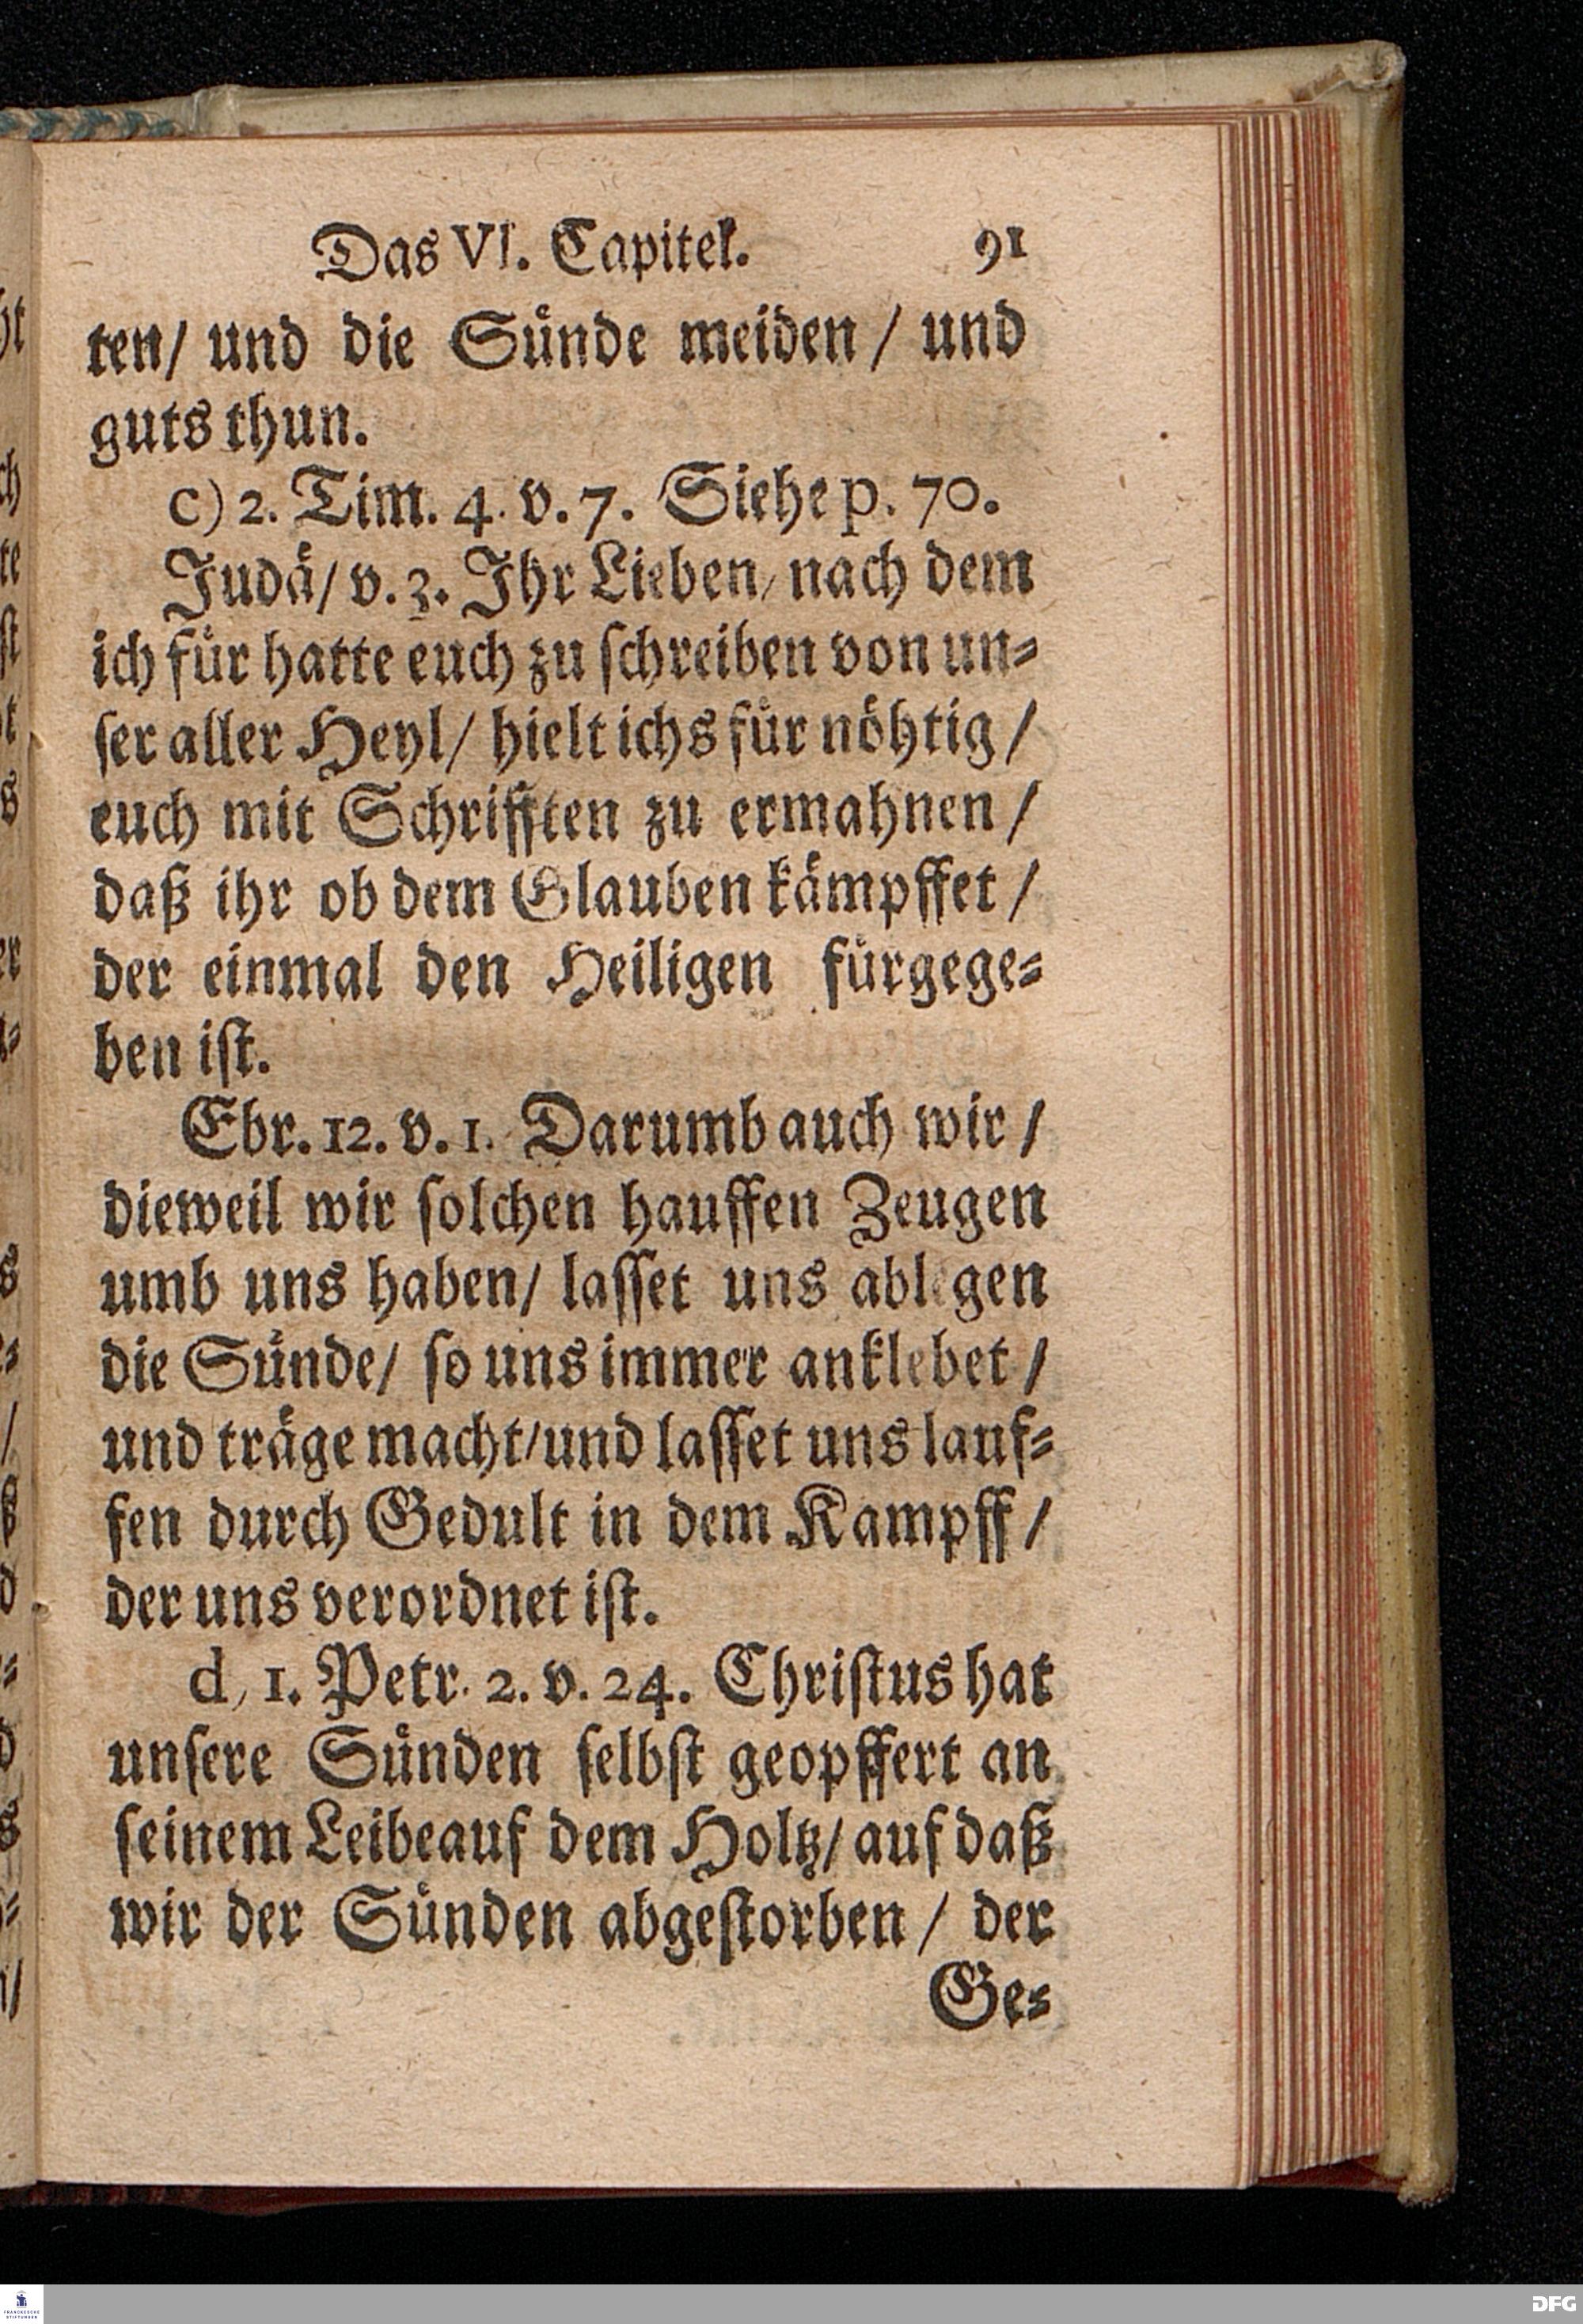 Das VI. Capitel. 91
ten/ und die Sünde meiden / und
guts thun.
c) 2. Tim. 4. v. 7. Siehe p. 70.
Judä/ v. 3. Ihr Lieben/ nach dem
ich für hatte euch zu schreiben von un-
ser aller Heyl/ hielt ichs für nöhtig /
euch mit Schrifften zu ermahnen /
daß ihr ob dem Glauben kämpffet /
der einmal den Heiligen fürgege-
ben ist.
Ebr. 12. v. 1. Darumb auch wir /
dieweil wir solchen hauffen Zeugen
umb uns haben/ lasset uns ablegen
die Sünde/ so uns immer anklebet /
und träge macht/ und lasset uns lauf-
fen durch Gedult in dem Kampff /
der uns verordnet ist.
d, 1. Petr. 2. v. 24. Christus hat
unsere Sünden selbst geopffert an
seinem Leibe auf dem Holtz/ auf daß
wir der Sünden abgestorben / der
Ge-
FRANCKESCHE STIFTUNGEN
DFG